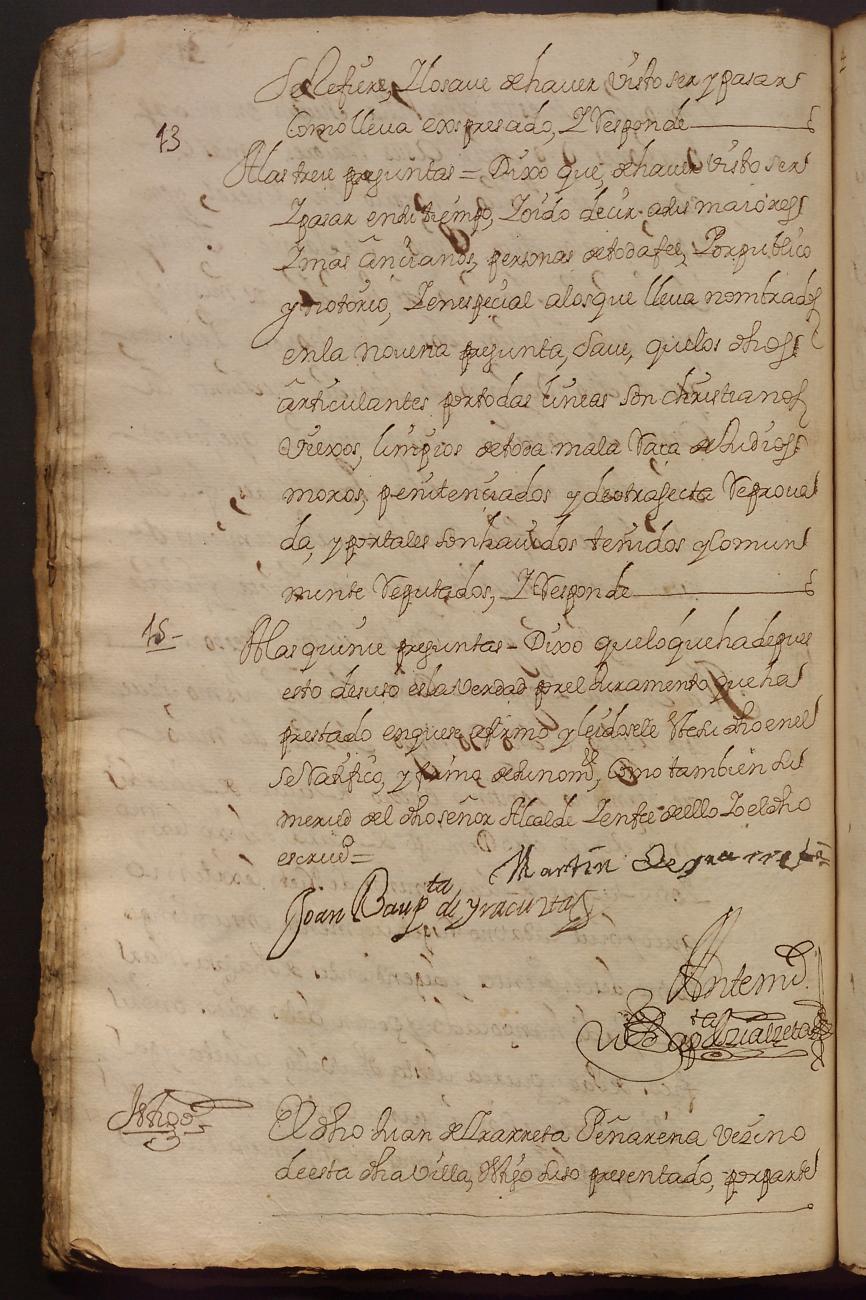 Se Refiere, Y lo save de haver visto ser y pasar
Como lleva expresado, Y Responde
13
A las trece preguntas = Dixo que, de haver visto ser
Y pasar en su tiempo, Y oido decir a sus maiores
Y más áncianos, personas de toda fee, Por publico
y notorio, Y en especial a los que lleva nombrados
en la novena pregunta, Save, que los dhos
articulantes por todas lineas son christianos
Viexos, limpios de toda mala Raza de Judios
moros, penitenciados y de otra secta Reprova
da, y por tales son havidos tenidos y Comun
mente Reputados, Y Responde
15
A las quinze preguntas = Dixo que lo que ha depu
esto de suso es la Verdad por el Juramento que ha
prestado en que se afirmó y leidosele este su dho en el
Se Ratificó, y firmó de su nomre, Como tambien su
merced del dho señor Alcalde Y en fee de ello Yo el dho
escrivo =
Martin de
Joan Bauptta de Yracurtas
Ante mi
Bapta de Zialzeta
Thgo
3
El dho Juan de Lrarreta Peñarena Vezino
de esta dha Villa, thgo suso presentado, por parte